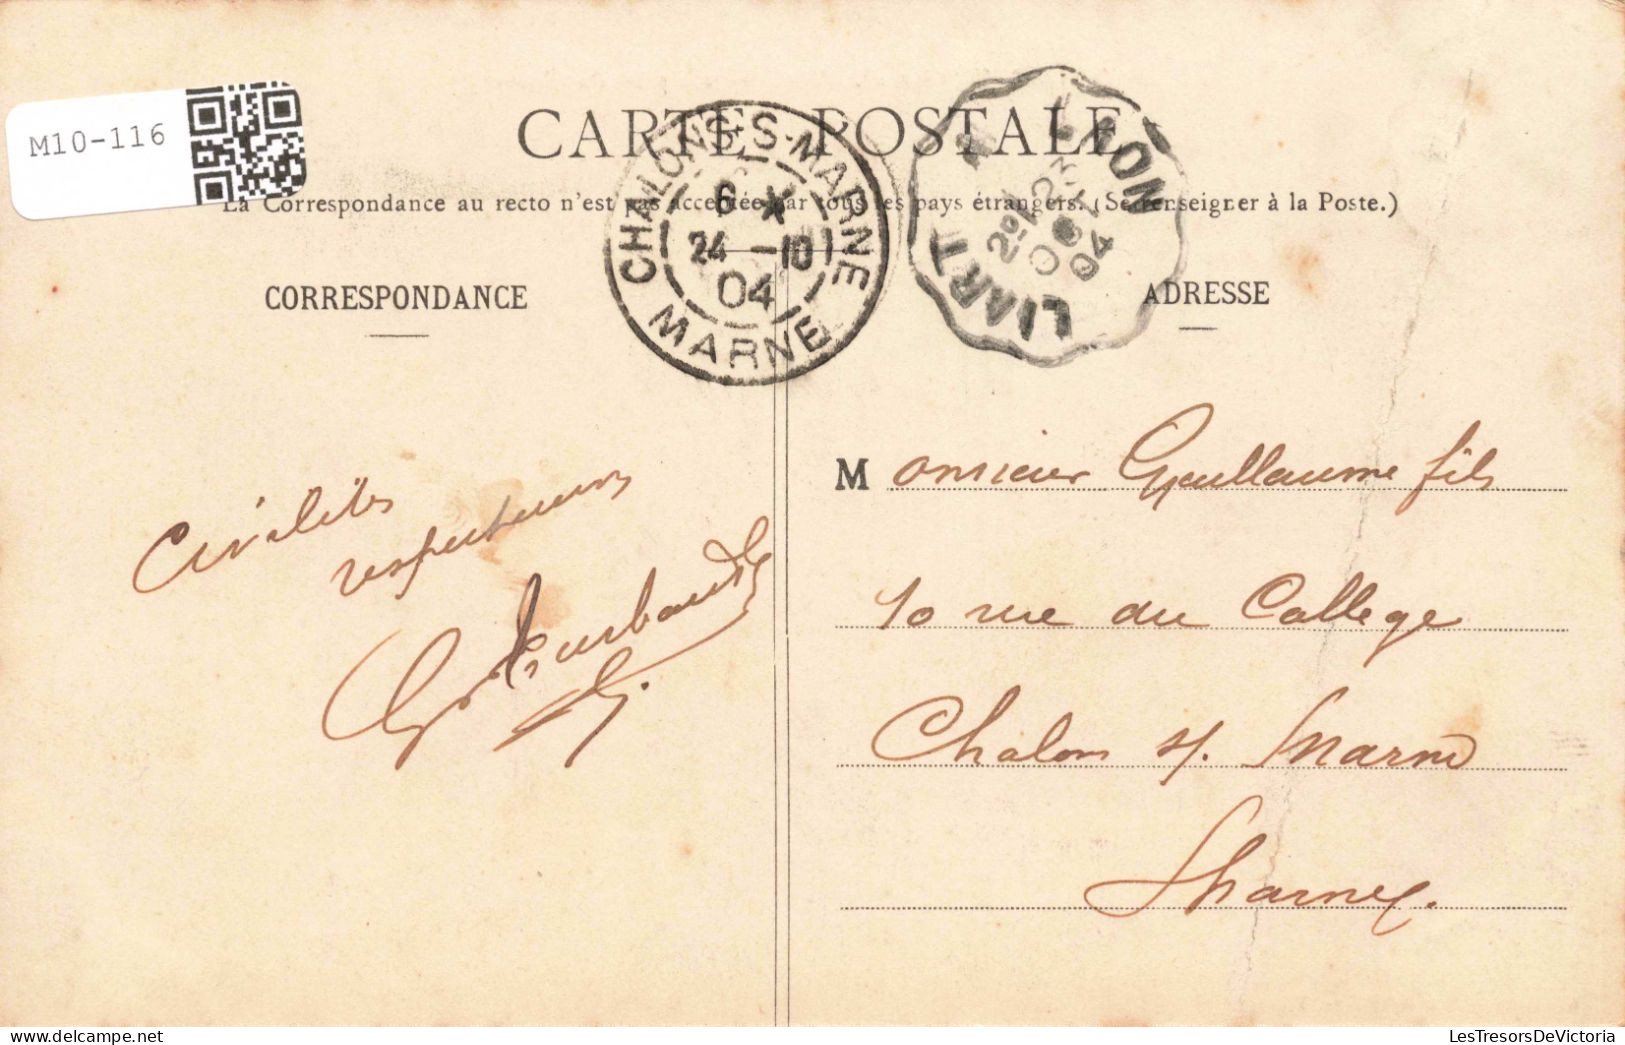 M10-116
CARTE POSTALE
La Correspondance au recto n'est pas acceptée par tous les pays étrangers. (Se renseigner à la Poste.)
CHALONS-S-MARNE
6 *
24 -10
04
MARNE
LIART
LAON
2º
23
OCT
04
CORRESPONDANCE
ADRESSE
Civilités
respectueuses
Monsieur Guillaume fils
10 rue du College
Chalon s/. Marne
Marne.
LesTresorsDeVictoria